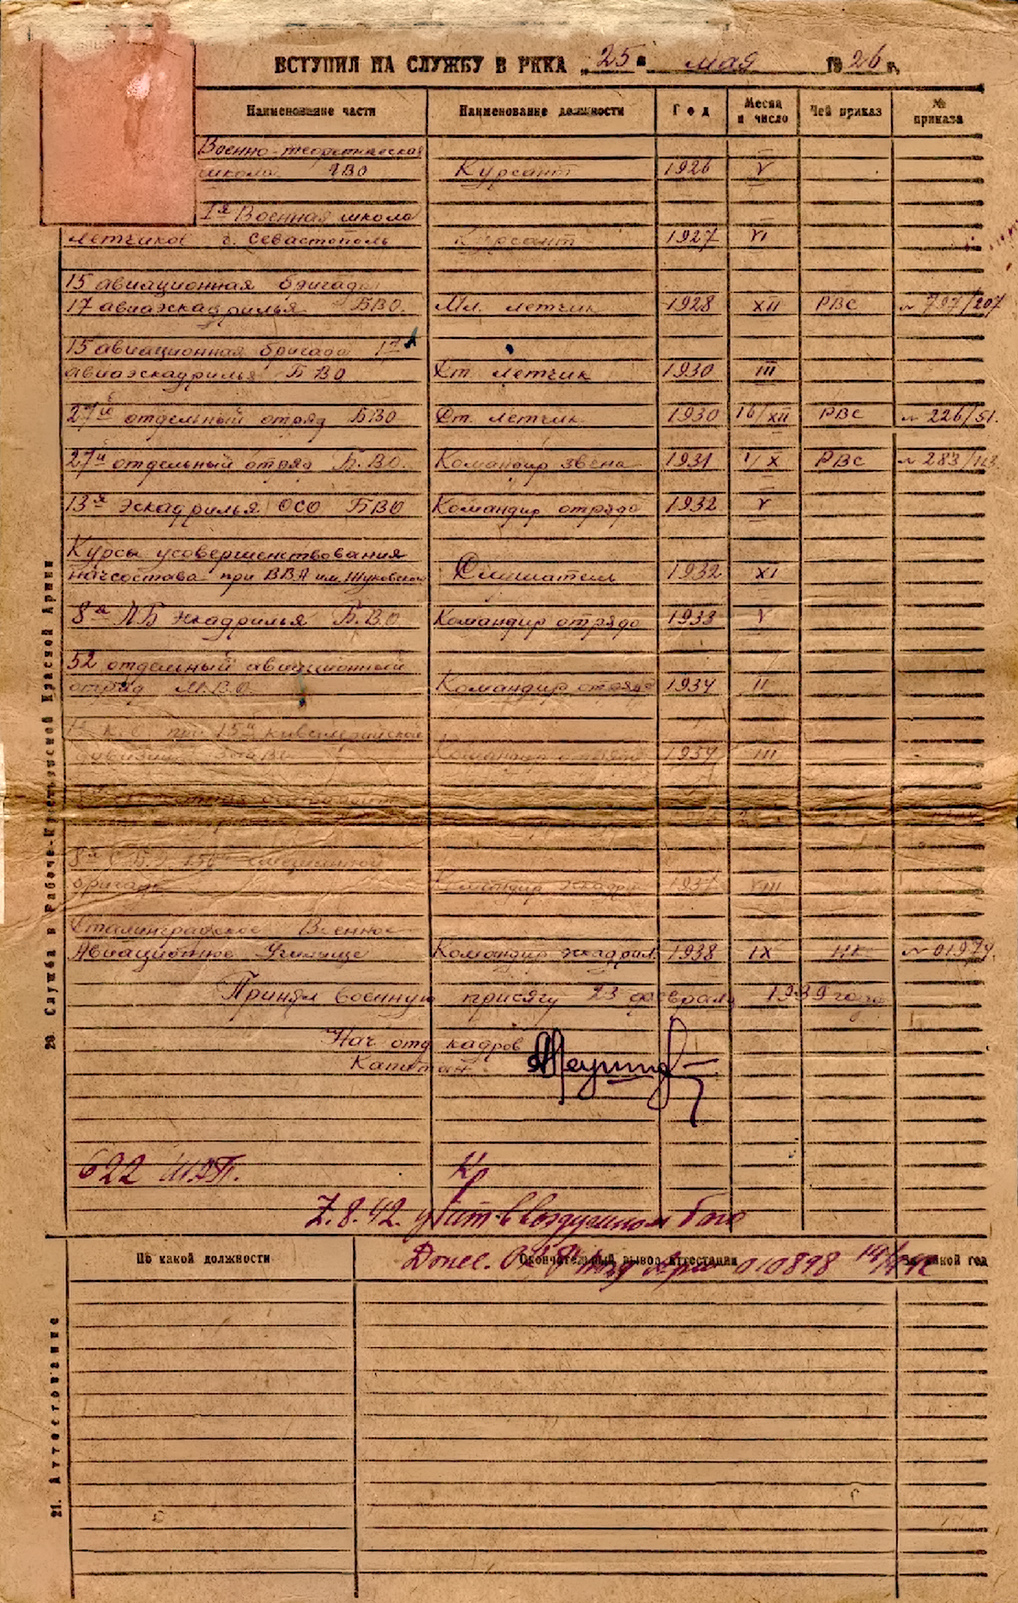 ВСТУПИЛ НА СЛУЖБУ В РККА „25" мая 1926 г.
Наименование части Наименование должности Год Месяц и число Чей приказ № приказа
Военно-теоретическая
школа Курсант 1926 V
1я Военная школа
летчиков г. Севастополь Курсант 1927 VI
15 авиационная бригада
17 авиаэскадрилья БВО. Мл. летчик 1928 XII РВС № 797/207
15 авиационная бригада
авиаэскадрилья БВО Ст. летчик 1930 III
27й отдельный отряд БВО Ст. летчик 1930 16/XII РВС № 226/51.
27й отдельный отряд Б.ВО. Командир звена 1931 1/X РВС № 283/
13я эскадрилья ОСО БВО Командир отряда 1932 V
Курсы усовершенствования
начсостава при ВВА им. Жуковского Слушатель 1932 XI
8я ЛБ эскадрилья Б.ВО Командир отряда 1933 V
52 отдельный авиационный
отряд М.ВО. Командир отряда 1934 II
при 15й кавалерийской
дивизии ЗабВО Командир отряда 1934 III
8я
бригада Командир эскадр. 1937 VIII
Сталинградское Военное
Авиационное Училище Командир эскадрил. 1938 IX № 01974.
Принял военную присягу 23 февраля 1939 года
Нач отд кадров
Капитан
622 ШАП.
7.8.42. убит в воздушном бою
Донес. 010898
20. Служба в Рабоче-Крестьянской Красной Армии
По какой должности Окончательный вывод аттестации За какой год
21. Аттестование